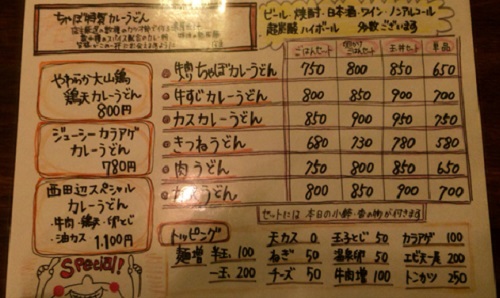 ちゃぼ特製カレーうどん
ビール・焼酎・日本酒・ワイン・ノンアルコール
超炭酸 ハイボール 多数ございます
やわらか大山鶏
鶏天カレーうどん
800円
ジューシーカラアゲ
カレーうどん
780円
西田辺スペシャル
カレーうどん
・牛肉・鶏天・卵とじ
・油カス 1,100円
Special!
ごはんセット ごはんセット 玉丼セット 単品
ちゃぼカレーうどん 750 800 850 650
牛すじカレーうどん 800 850 900 700
カスカレーうどん 850 900 950 750
きつねうどん 680 730 780 580
肉うどん 750 800 850 650
うどん 800 850 900 700
セットには 本日の小鉢・香の物が付きます
トッピング
麺増 半玉 100
一玉 200
天カス 0
ねぎ 50
チーズ 50
玉子とじ 50
温泉卵 50
牛肉増 100
カラアゲ 100
エビ天一尾 200
トンカツ 250